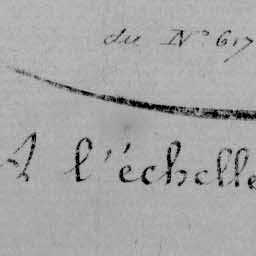 du N° 617
A l'échelle